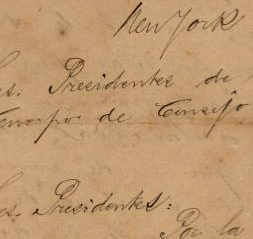 New York
es. Presidentes de
Cuerpo de Consejo
es. Presidentes:
Por la